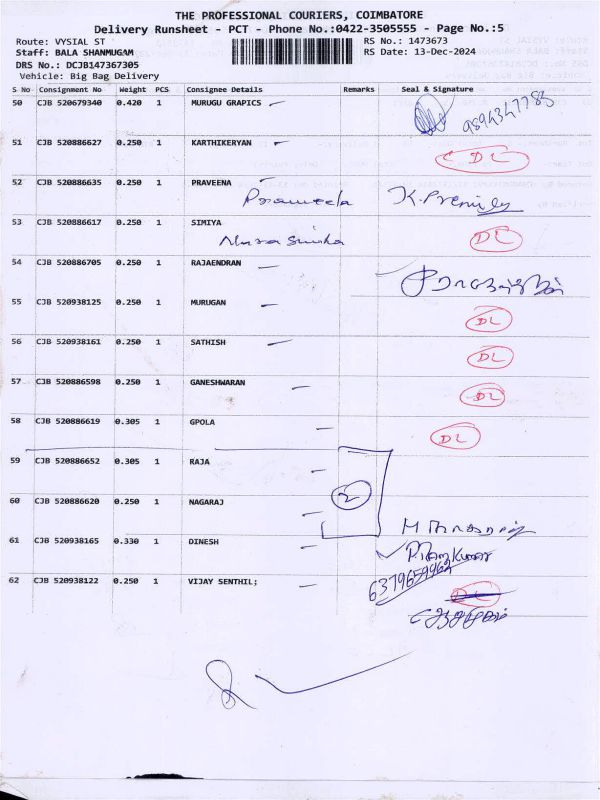 THE PROFESSIONAL COURIERS, COIMBATORE
Delivery Runsheet - PCT - Phone No.:0422-3505555 - Page No.:5
Route: VYSIAL ST RS No.: 1473673
Staff: BALA SHANMUGAM RS Date: 13-Dec-2024
DRS No.: DCJB147367305
Vehicle: Big Bag Delivery
S No Consignment No Weight PCS Consignee Details Remarks Seal & Signature
50 CJB 520679340 0.420 1 MURUGU GRAPICS
9894347785
51 CJB 520886627 0.250 1 KARTHIKERYAN DL
52 CJB 520886635 0.250 1 PRAVEENA
Prameela K. Premily
53 CJB 520886617 0.250 1 SIMIYA
DL
54 CJB 520886705 0.250 1 RAJAENDRAN
55 CJB 520938125 0.250 1 MURUGAN DL
56 CJB 520938161 0.250 1 SATHISH DL
57 CJB 520886598 0.250 1 GANESHWARAN DL
58 CJB 520886619 0.305 1 GPOLA DL
59 CJB 520886652 0.305 1 RAJA
2
60 CJB 520886620 0.250 1 NAGARAJ
M நாகராஜ்
61 CJB 520938165 0.330 1 DINESH
6379659962
62 CJB 520938122 0.250 1 VIJAY SENTHIL;
DL